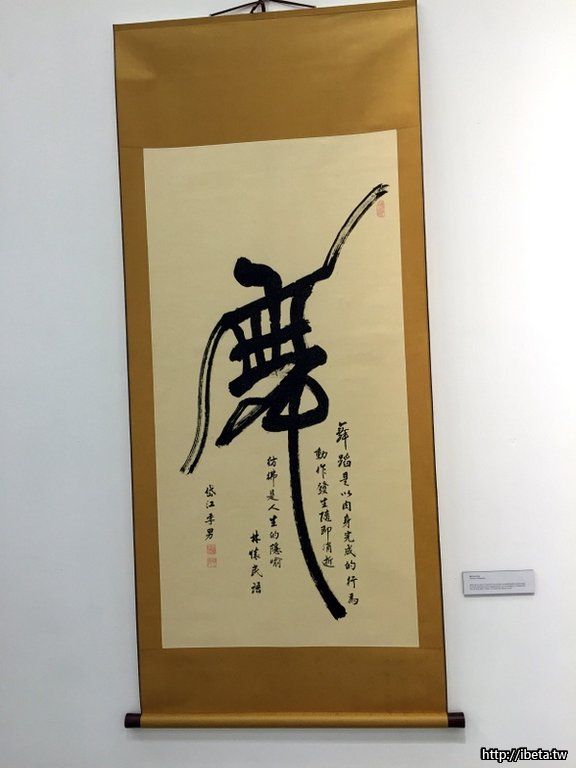 舞
舞蹈是以肉身完成的行為
動作發生隨即消逝
彷彿是人生的隱喻
林懷民語
岱江李男
http://ibeta.tw